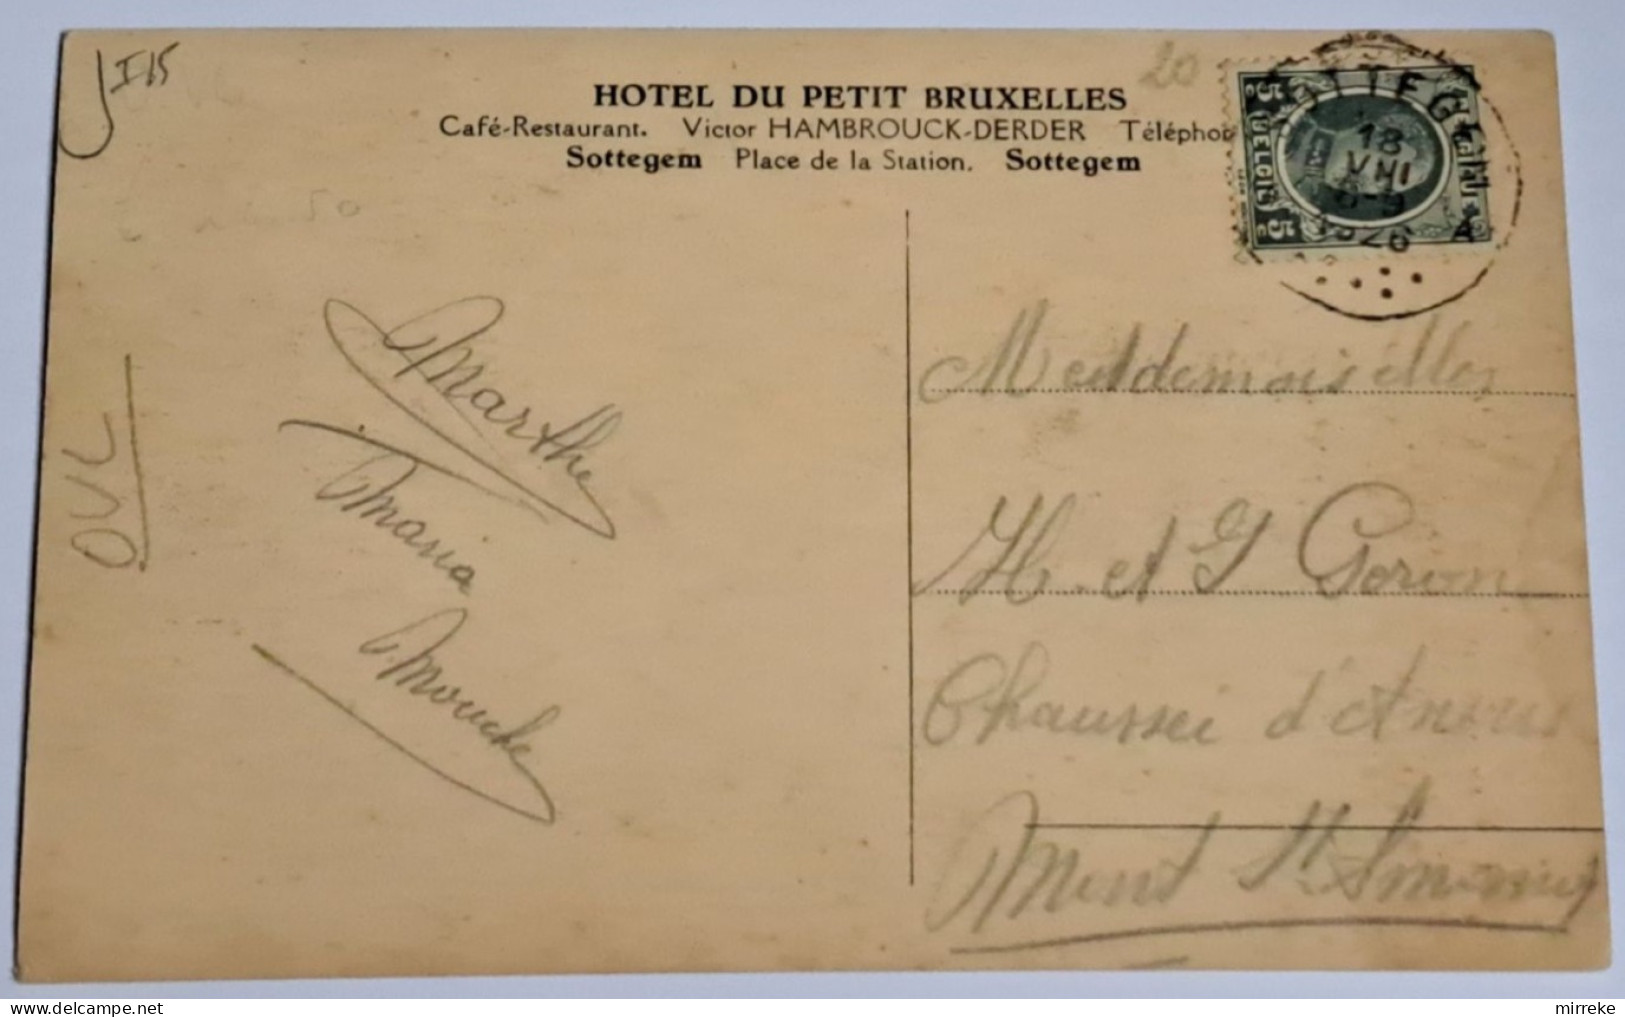 I15
20
HOTEL DU PETIT BRUXELLES
Café-Restaurant. Victor HAMBROUCK-DERDER Télépho
Sottegem Place de la Station. Sottegem
SOTTEGEM
18
VIII
8-9
1926
A
5c BELGIË 5c
OVL
Marthe
Maria
Mouche
Mesdemoiselles
H. et G Goron
Chaussei d'Anvers
Mont St Amand
mirreke